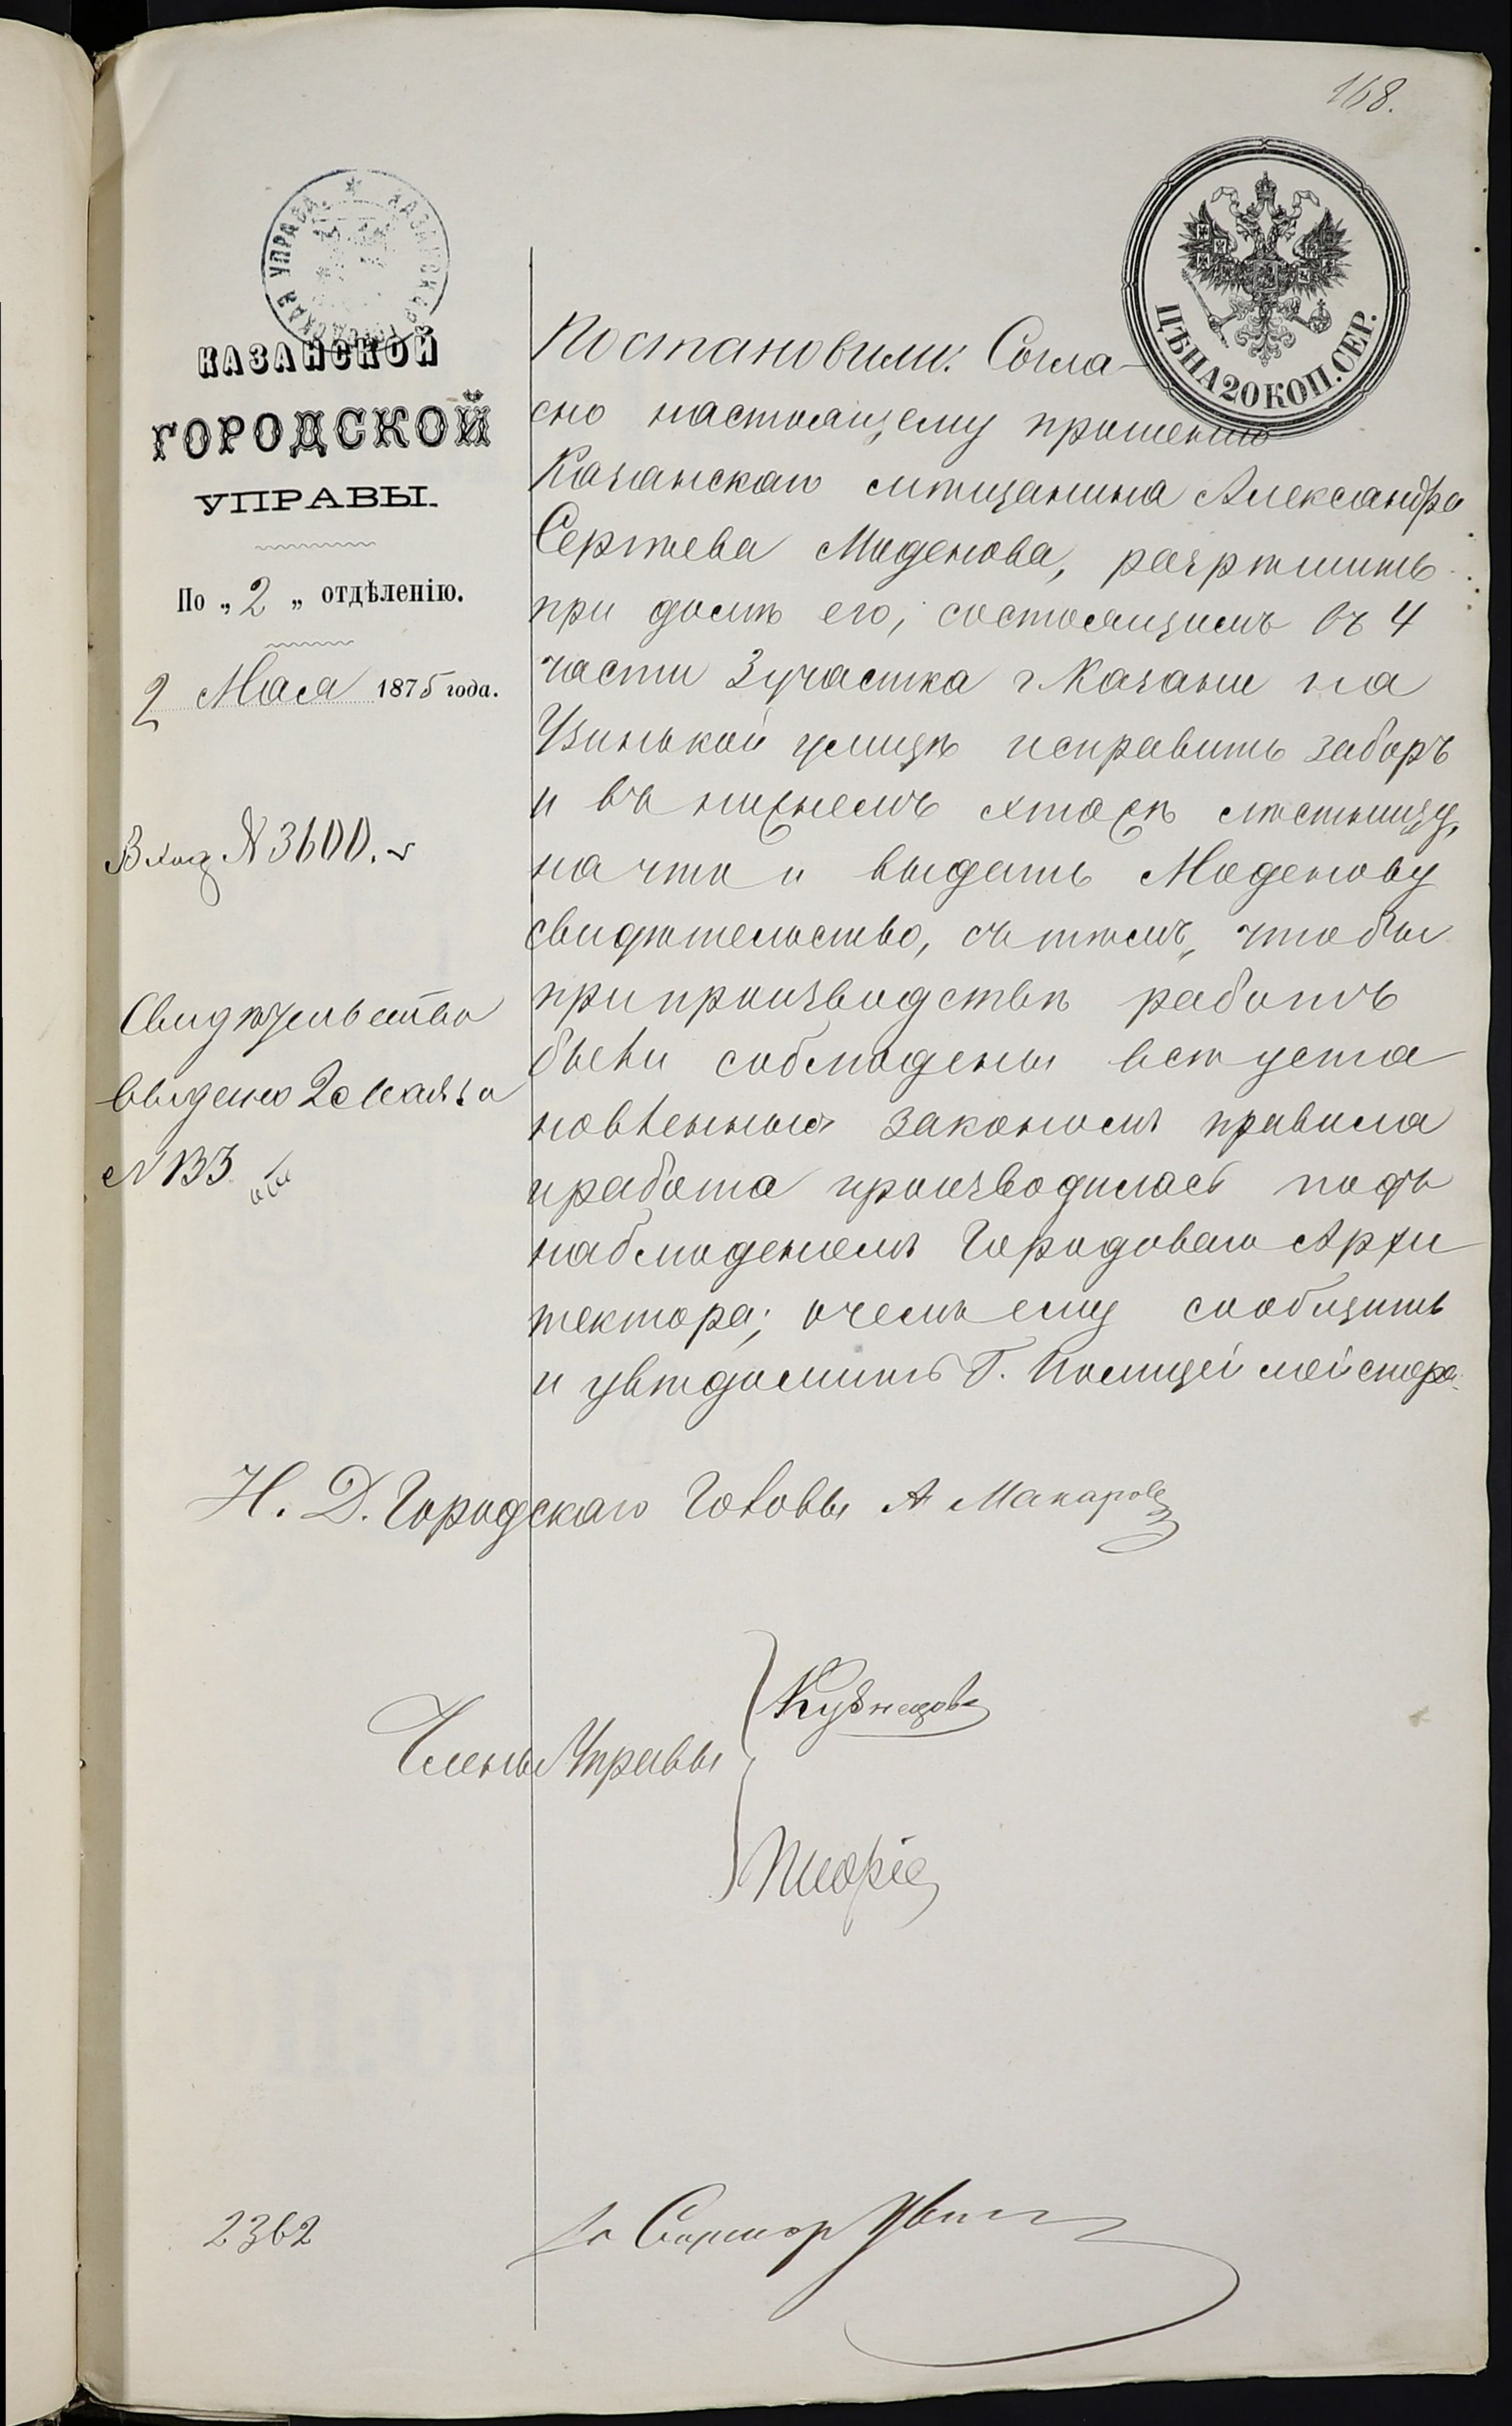 168.
КАЗАНСКАЯ ГОРОДСКАЯ УПРАВА
ЦѢНА 20 КОП. СЕР.
КАЗАНСКОЙ
ГОРОДСКОЙ
УПРАВЫ.
По „2„ отдѣленію.
2 Мая 1875 года.
Вход № 3600.
Свидѣтельство
выдано 2 Мая за
№ 133
Постановили: Согла-
сно настоящему прошенію
Казанскаго мѣщанина Александра
Сергѣева Маденова, разрѣшить
при домѣ его, состоящимъ въ 4
части 3 участка г. Казани на
Узинькой улицѣ исправить заборъ
и въ нижнемъ этажѣ лѣстницу,
на что и выдать Маденову
свидѣтельство, съ тѣмъ, чтобы
при производствѣ работъ
были соблюдены всѣ уста
новленныя закономъ правила
и работа производилась подъ
наблюденіемъ Городоваго Архи
тектора; о чемъ ему сообщить
и увѣдомить Г. Полицеймейстера.
Н. Д. Городскаго Головы А Макаровъ
Члены Управы
Кузнецовъ
2362